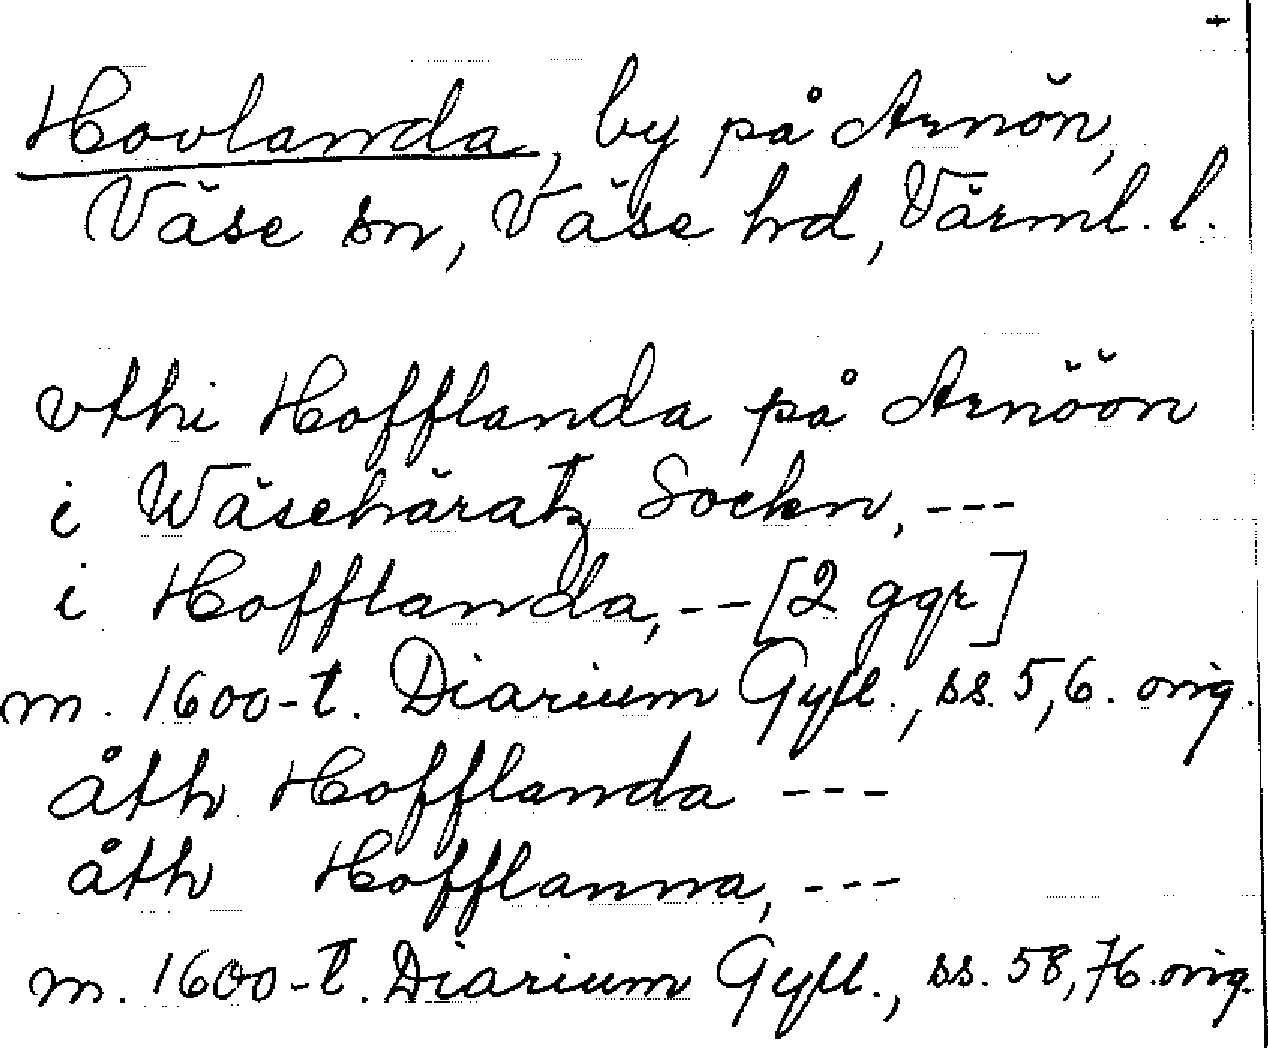 Hovlanda, by på Arnön,
Väse sn, Väse hd, Värml. l.
vthi Hofflanda på Arnöön
i Wäsehäratz Sockn, ---
i Hofflanda, -- [2 ggr]
m. 1600-t. Diarium Gyll., ss. 5, 6. orig.
åth Hofflanda ---
åth Hofflanna, ---
m. 1600-t. Diarium Gyll., ss. 58, 76. orig.